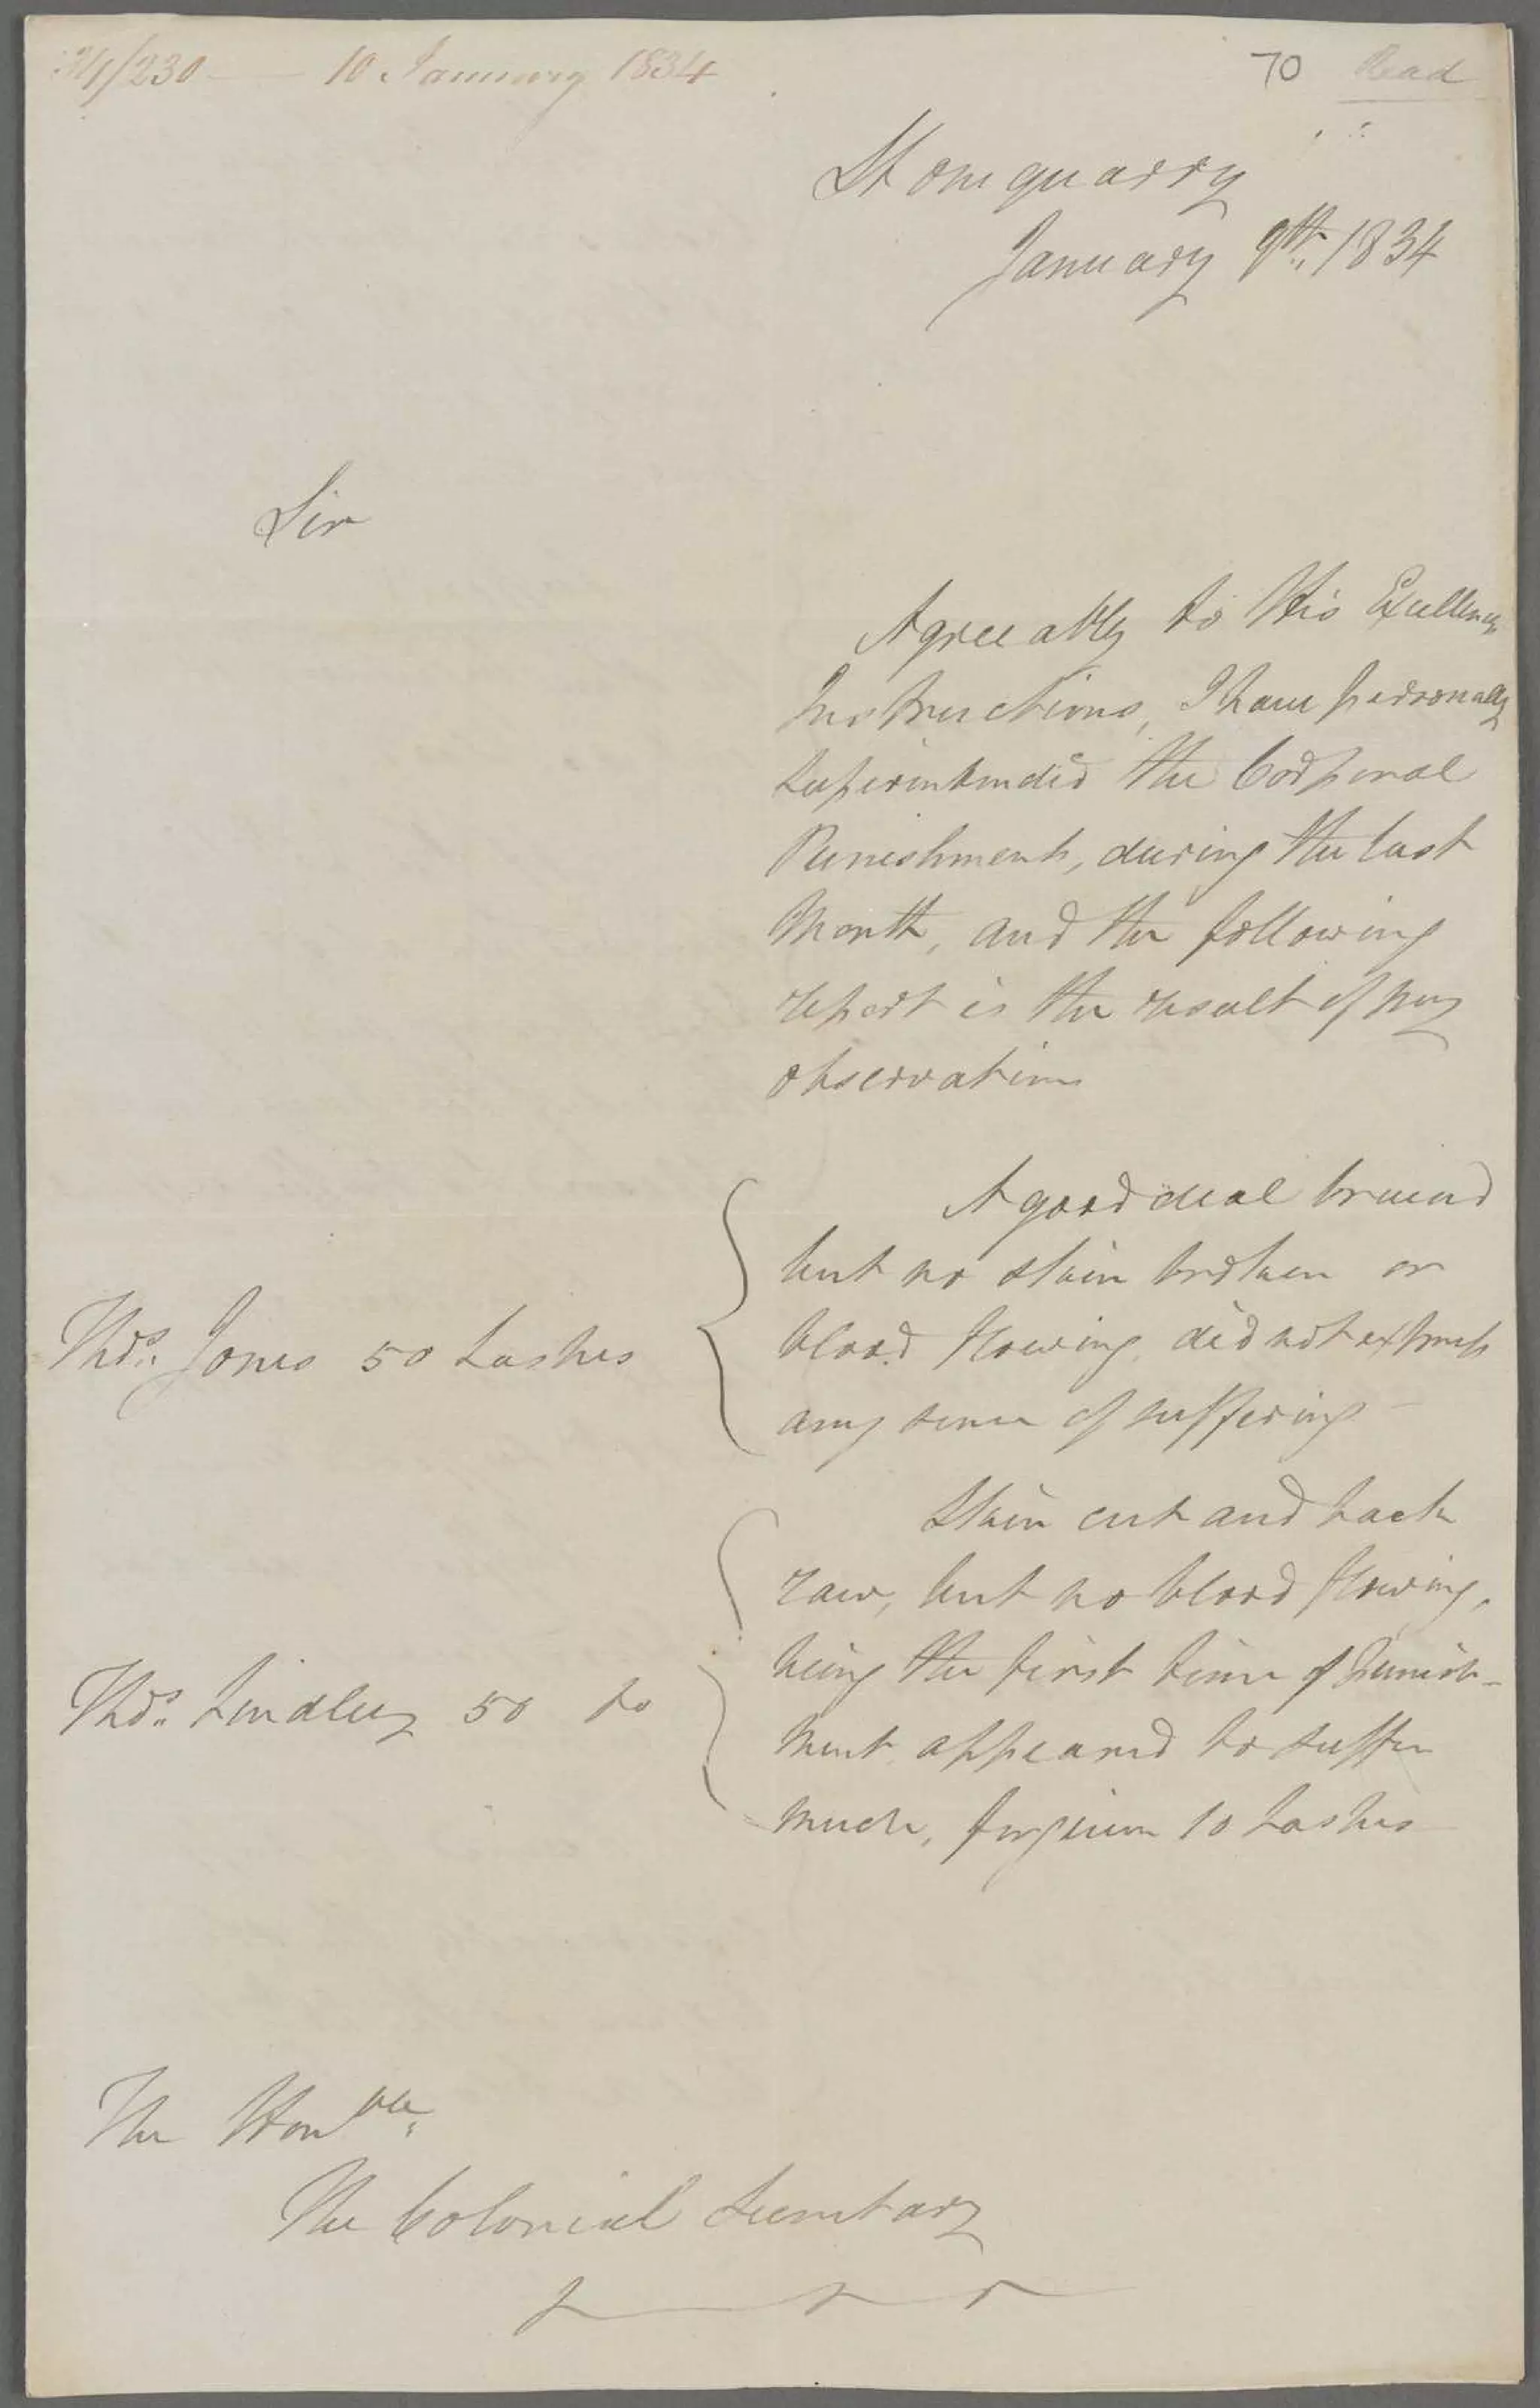 34/230 — 10 January 1834
70 Read
Stonequarry
January 9th 1834
Sir
Agreeably to His Excellencys
Instructions, I have personally
superintended the Corporal
Punishments, during the last
Month, and the following
report is the result of my
observations
A good deal bruised
but no skin broken or
Thos. Jones 50 Lashes
blood flowing, did not express
any sense of suffering —
Skin cut and back
raw, but no blood flowing,
being the first time of Punish-
Thos. Lindley 50 do
ment appeared to suffer
much, forgiven 10 Lashes
The Honble.
The Colonial Secretary